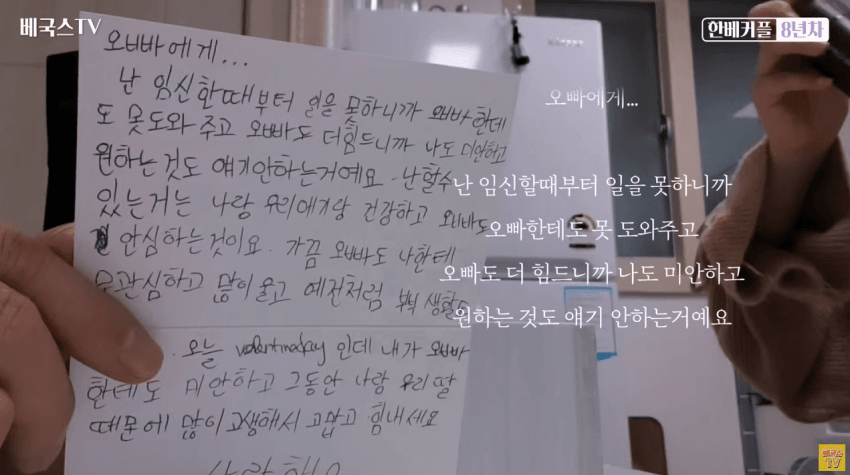 베국스TV
한베커플 8년차
오빠에게...
난 임신할때부터 일을 못하니까 오빠한테
도 못도와 주고 오빠도 더힘드니까 나도 미안하고
원하는 것도 얘기안하는거예요. 난 할수
있는거는 나랑 우리애기랑 건강하고 오빠도
안심하는것이요. 가끔 오빠도 나한테
무관심하고 많이 울고 예전처럼 부부 생활도
오늘 valentineday 인데 내가 오빠
한테도 미안하고 그동안 나랑 우리 딸
때문에 많이 고생해서 고맙고 힘내세요
오빠에게...
난 임신할때부터 일을 못하니까
오빠한테도 못 도와주고
오빠도 더 힘드니까 나도 미안하고
원하는 것도 얘기 안하는거예요
베국스
TV